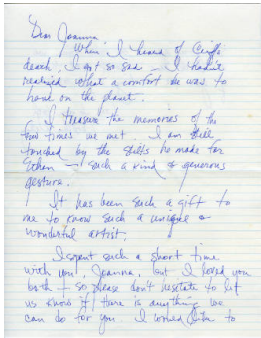 Dear Joanna,
When I heard of
death, I felt so sad — I hadn't
realized what a comfort he was to
have on the planet.
I treasure the memories of the
few times we met. I am still
touched by the stilts he made for
Ethan — such a kind + generous
gesture.
It has been such a gift to
me to know such a unique &
wonderful artist.
I spent such a short time
with you, Joanna, but I loved you
both + so please don't hesitate to let
us know if there is anything we
can do for you. I would like to